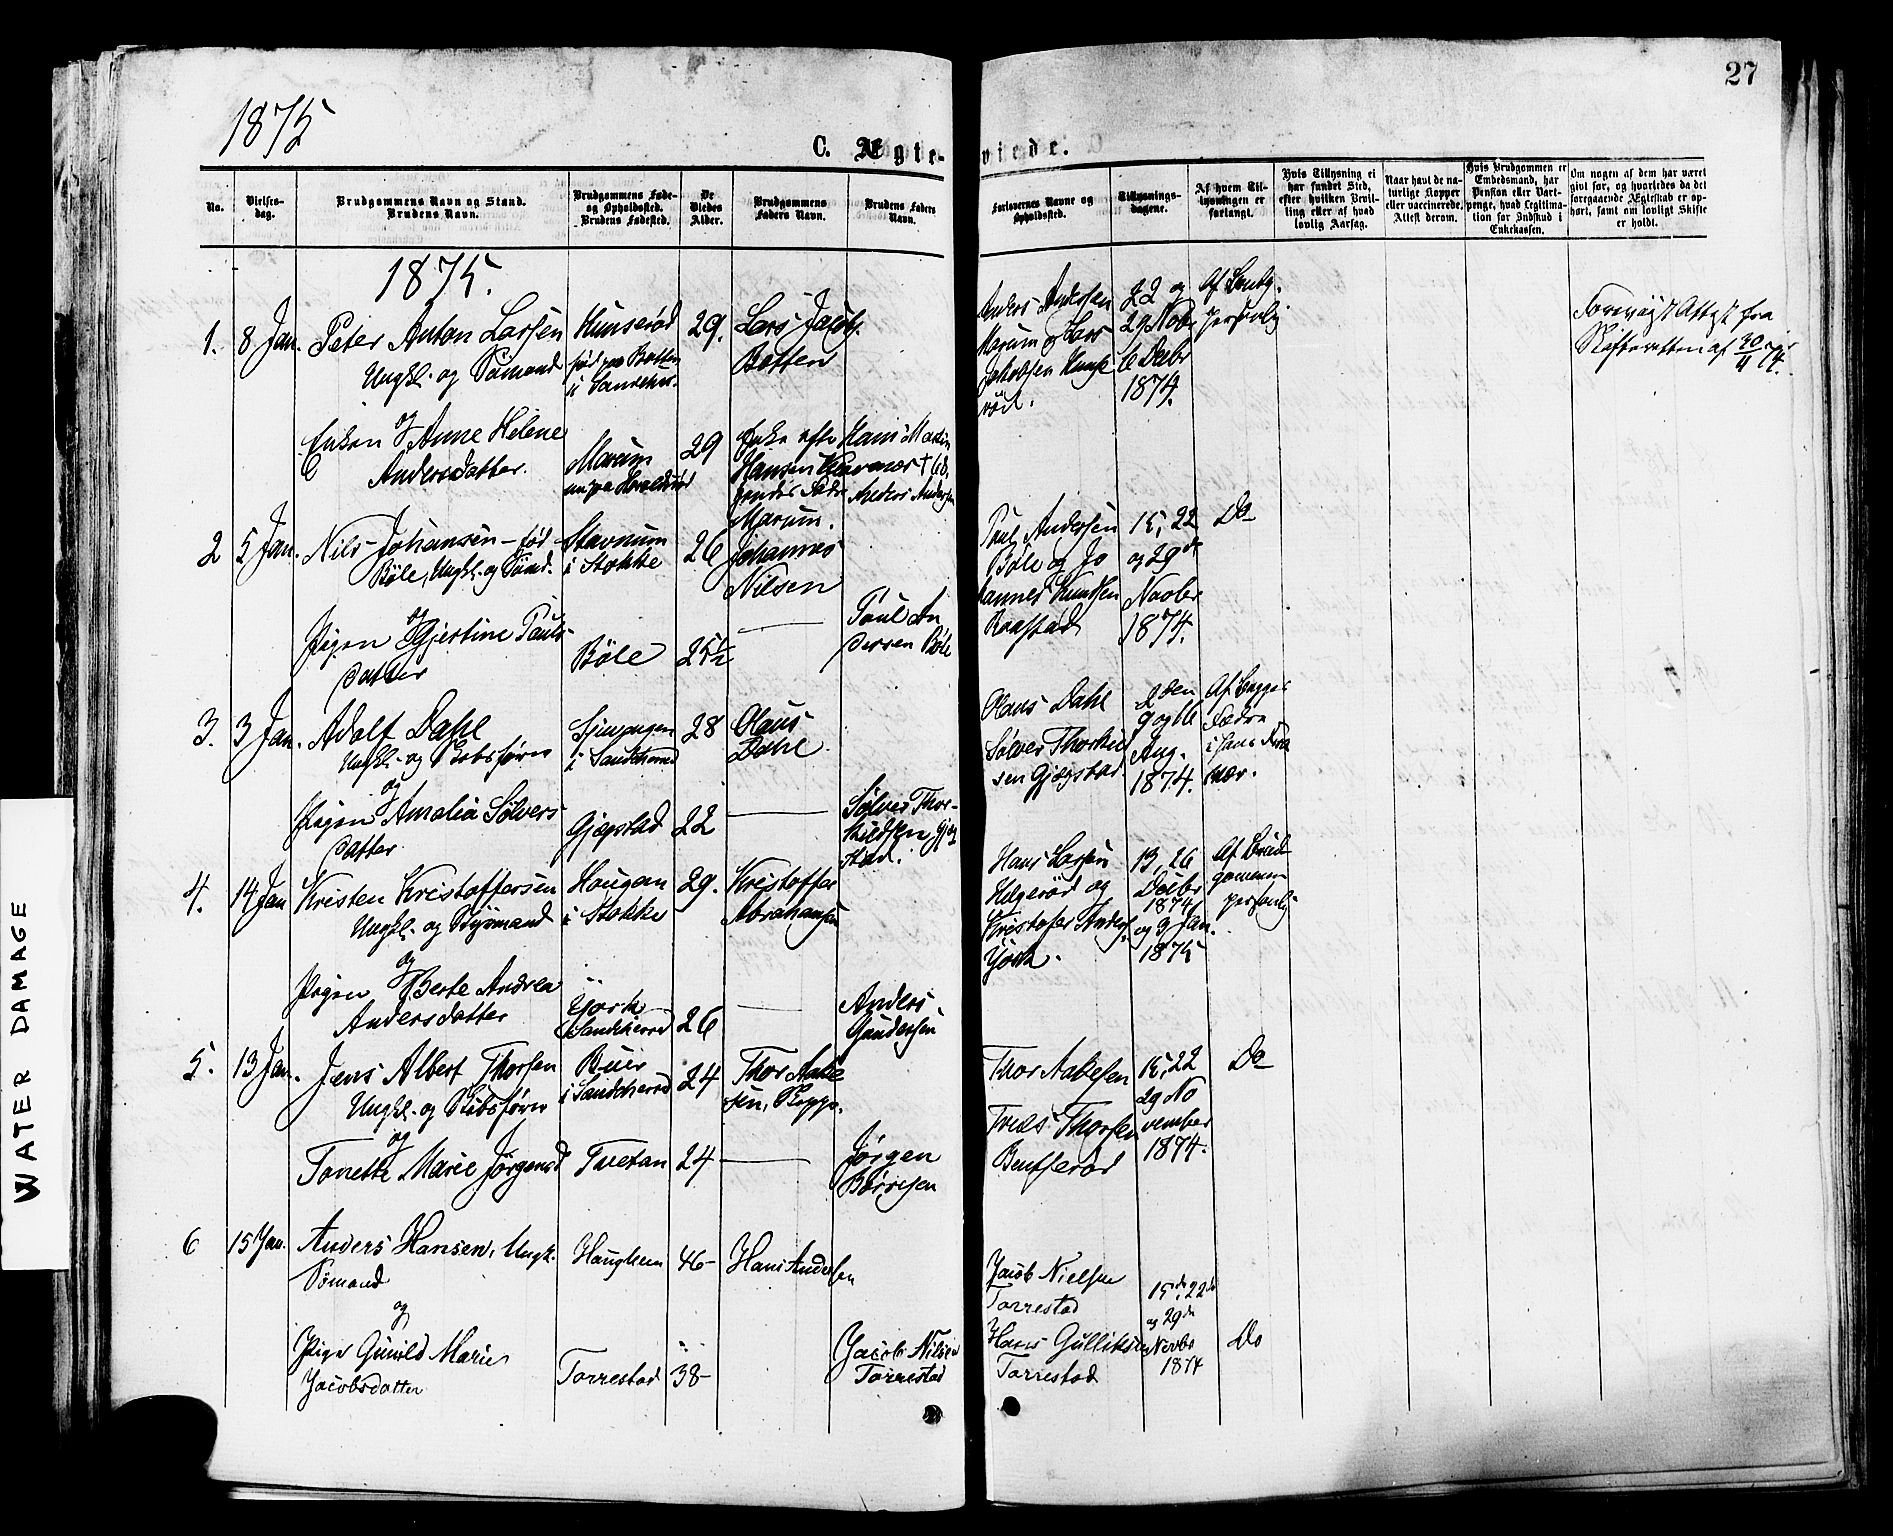 27
1875
C. Ægte-
viede.
No.
Vielses-
dag.
Brudgommens Navn og Stand.
Brudens Navn.
Brudgommens Føde-
og Opholdssted.
Brudens Fødested.
De
Viedes
Alder.
Brudgommens
Faders Navn.
Brudens Faders
Navn.
Forlovernes Navne og
Opholdssted.
Tillysnings-
dagene.
Af hvem Til-
lysningen er
forlangt.
Hvis Tillysning ei
har fundet Sted,
efter hvilken Bevil-
ling eller af hvad
lovlig Aarsag.
Naar havt de na-
turlige Kopper
eller vaccinerede.
Attest derom.
Hvis Brudgommen er
Embedsmand, har
Pension eller Vart-
penge, hvad Legitima-
tion for Indskud i
Enkekassen.
Om nogen af dem har været
gift før, og hvorledes da det
foregaaende Ægteskab er op-
hørt, samt om lovligt Skifte
er holdt.
1875.
1. 8 Jan. Peter Anton Larsen
Ungkl. og Sømand
Hunserød
født paa Botten
i Sandeher.
29.
Lars Jacobs.
Botten
Anders Andersen
Marum og Lars
Jakobsen Hunse
rød.
22 og
29 Nob.
6 Decbr
1874.
Af Brudg.
personlig
Forevist Attest fra
Skifteretten af 30/11 74.
og
Enken Anne Helene
Andersdatter.
Marum
29
Enke efter Hans Martin
Hansen
Fader Anders Andersen
Marum.
2 5 Jan. Nils Johansen - fød
Bøle, Ungkl. og Sømd.
Stavnum
i Stokke
26
Johannes
Nilsen
Paul Andersen
Bøle og Jo
hannes Knudsen
Raastad
15, 22
og 29de
Novbr
1874.
Do
og
Pigen Gjertine Pauls-
datter
Bøle
25½
Paul An
dersen Bøle
3. 3 Jan. Adolf Dahl
Ungkl. og Skibsfører
i Sandeherred
28
Olaus
Dahl.
Olaus Dahl
Sølver Thorkild
sen Gjøgstad.
2den
9 og 16
Aug.
1874.
Af begges
Fædre
i hans Nær
vær.
og
Pigen Amalia Sølvers
datter
Gjøgstad
22
Sølver Thor-
kildsen Gjøg
stad.
4. 14 Jan Kristen Kristoffersen
Ungkl. og Styrmand
Haugan
i Stokke
29.
Kristoffer
Abrahamsen
Hans Larsen
Helgerød og
Kristofer Anders.
York.
13, 26
Decbr
1874
og 9 Jan.
1875
Af Brud-
gommen
personlig
og
Pigen Berte Andrea
Andersdatter
York
i Sandeherred
26
Anders
Gundersen
5. 13 Jan. Jens Albert Thorsen
Ungkl. og Skibsfører
Buer
i Sandeherred
24
Thor Aake
sen,
Thor Aakesen
Freds Thorsen
Bentserød
15, 22
29 No
vember
1874.
Do
og
Tonette Marie Jørgensd
Tvetan
24
Jørgen
Børresen
6 15 Jan. Anders Hansen, Ungk.
Sømand
Haughem
46-
Hans Andersen
Jacob Nielsen
Torrestad
Hans Gulliksen
Torrestad
15de, 22de
og 29de
Novbr
1874
Do
og
Pige Gunild Marie
Jacobsdatter
Torrestad
38-
Jacob Nilsen
Torrestad
WATER DAMAGE